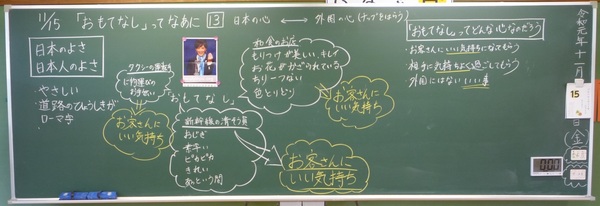 11/15 「おもてなし」ってなあに 13 日本の心 ⟷ 外国の心(チップをはらう)
日本のよさ
日本人のよさ
・やさしい
・道路の
ローマ字
タクシーの運転手
お客さんに
いい気持ち
「おもてなし」
和食のお店
もりつけが美しい、キレイ
お花がかざられている
色とりどり
お客さんに
いい気持ち
新幹線の清そう員
おじぎ
ピカピカ
きれい
あっという間
お客さんに
いい気持ち
「おもてなし」ってどんな心なのだろう
・お客さんにいい気持ちになってもらう
・相手に気持ちよく過ごしてもらう
外国にはないいい事
令和元年十一月
15
日(金)